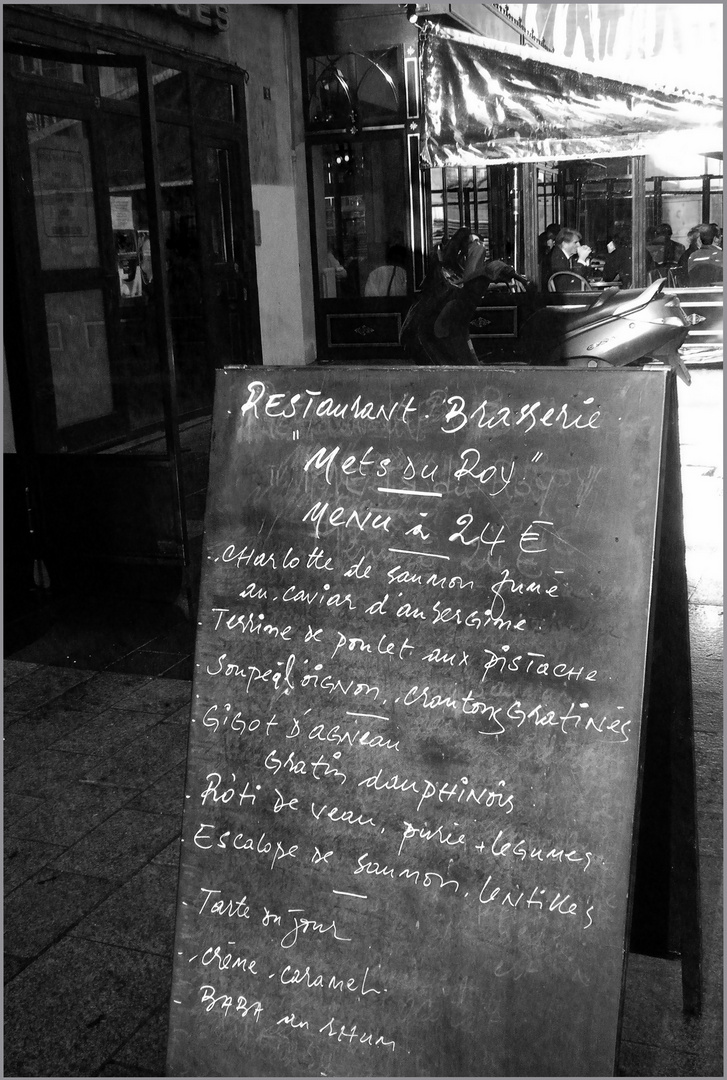 Restaurant. Brasserie
"Mets du Roy."
Menu à 24 €
- Charlotte de saumon fumé
au caviar d'aubergine.
- Terrine de poulet aux pistache.
- Soupe à l'oignon, croutons Gratinés
- Gigot d'agneau
Gratin dauphinois
- Rôti de veau, purée + legumes.
- Escalope de saumon, lentilles
- Tarte du jour
- crème caramel.
- BABA au rhum.